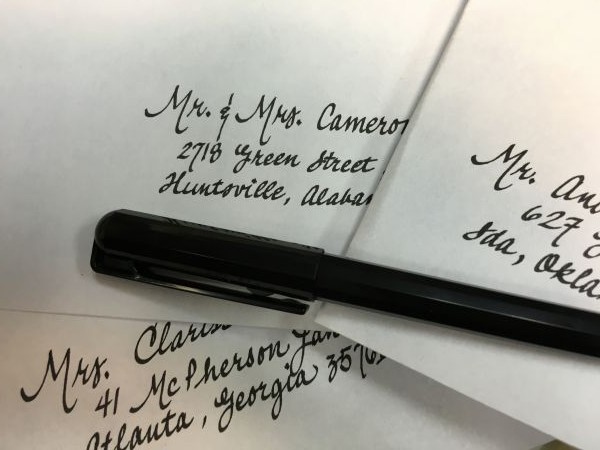 Mr. & Mrs. Cameron
2718 Green Street
Huntsville, Alabam
Mr. An
627
Ida, Okla
Mrs. Claris
41 McPherson Lan
Atlanta, Georgia 3576